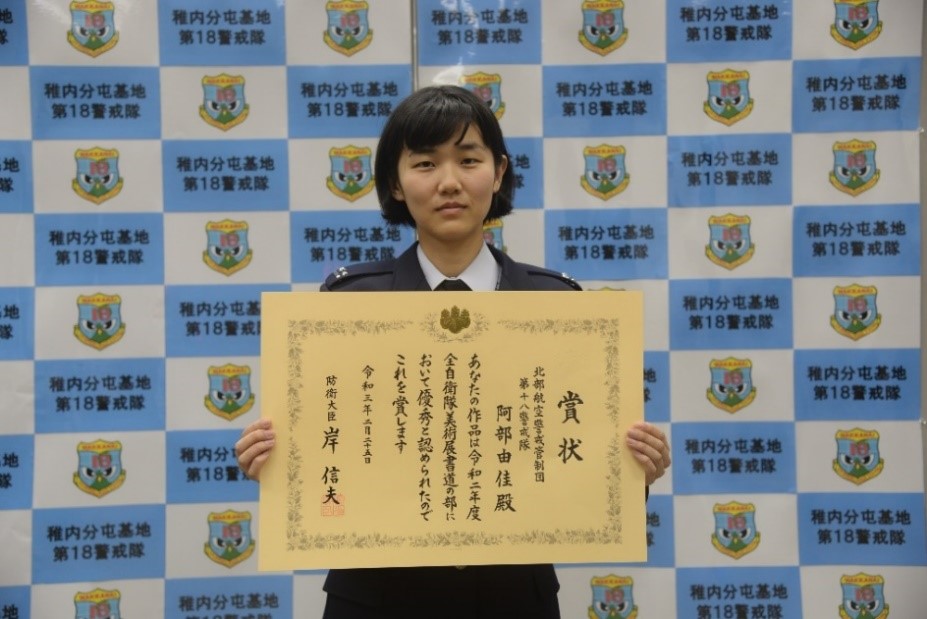 稚内分屯基地
第18警戒隊
賞状
北部航空警戒管制団
第十八警戒隊
阿部由佳殿
あなたの作品は令和二年度
全自衛隊美術展書道の部に
おいて優秀と認められたので
これを賞します
令和三年二月二十五日
防衛大臣 岸 信夫